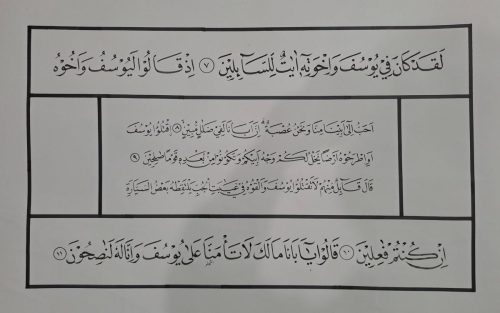 لَقَدْ كَانَ فِي يُوسُفَ وَاِخْوَتِهٖٓ اٰيَاتٌ لِلسَّٓائِلٖينَ ﴿٧﴾ اِذْ قَالُوا لَيُوسُفُ وَاَخُوهُ
اَحَبُّ اِلٰٓى اَبٖينَا مِنَّا وَنَحْنُ عُصْبَةٌ اِنَّ اَبَانَا لَفٖي ضَلَالٍ مُبٖينٍ ﴿٨﴾ اُقْتُلُوا يُوسُفَ
اَوِ اطْرَحُوهُ اَرْضًا يَخْلُ لَكُمْ وَجْهُ اَبٖيكُمْ وَتَكُونُوا مِنْ بَعْدِهٖ قَوْمًا صَالِحٖينَ ﴿٩﴾
قَالَ قَٓائِلٌ مِنْهُمْ لَا تَقْتُلُوا يُوسُفَ وَاَلْقُوهُ فٖي غَيَابَتِ الْجُبِّ يَلْتَقِطْهُ بَعْضُ السَّيَّارَةِ
اِنْ كُنْتُمْ فَاعِلٖينَ ﴿١٠﴾ قَالُوا يَٓا اَبَانَا مَا لَكَ لَا تَأْمَنَّا عَلٰى يُوسُفَ وَاِنَّا لَهُ لَنَاصِحُونَ ﴿١١﴾